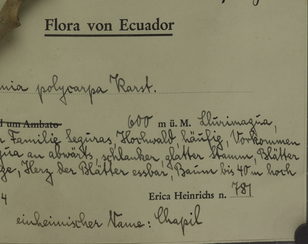 Flora von Ecuador
nia polycarpa Karst.
d um Ambato 600 m ü. M. Llurimagua,
Familie Seguras, Hochwald, häufig, Vorkommen
gua an abwärts, schlanker, glatter Stamm, Blätter
ge, Herz der Blätter essbar, Baum bis 40 m hoch
4 Erica Heinrichs n. 781
einheimischer Name: Chapil